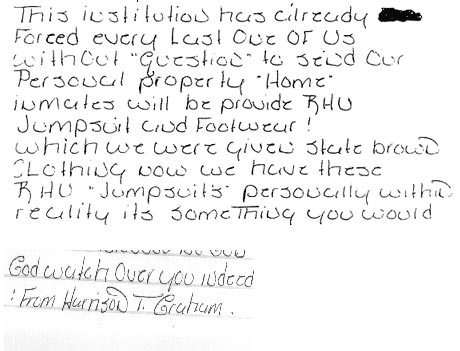 This institution has already
Forced every Last One Of Us
without "Question" to send Our
Personal property "Home"
inmates will be provide RHU
Jumpsuit and Footwear!
which we were given state brown
CLothing now we have these
RHU "Jumpsuits" personally within
reality its someThing you would
God watch Over you indeed
: From Harrison T. Graham.